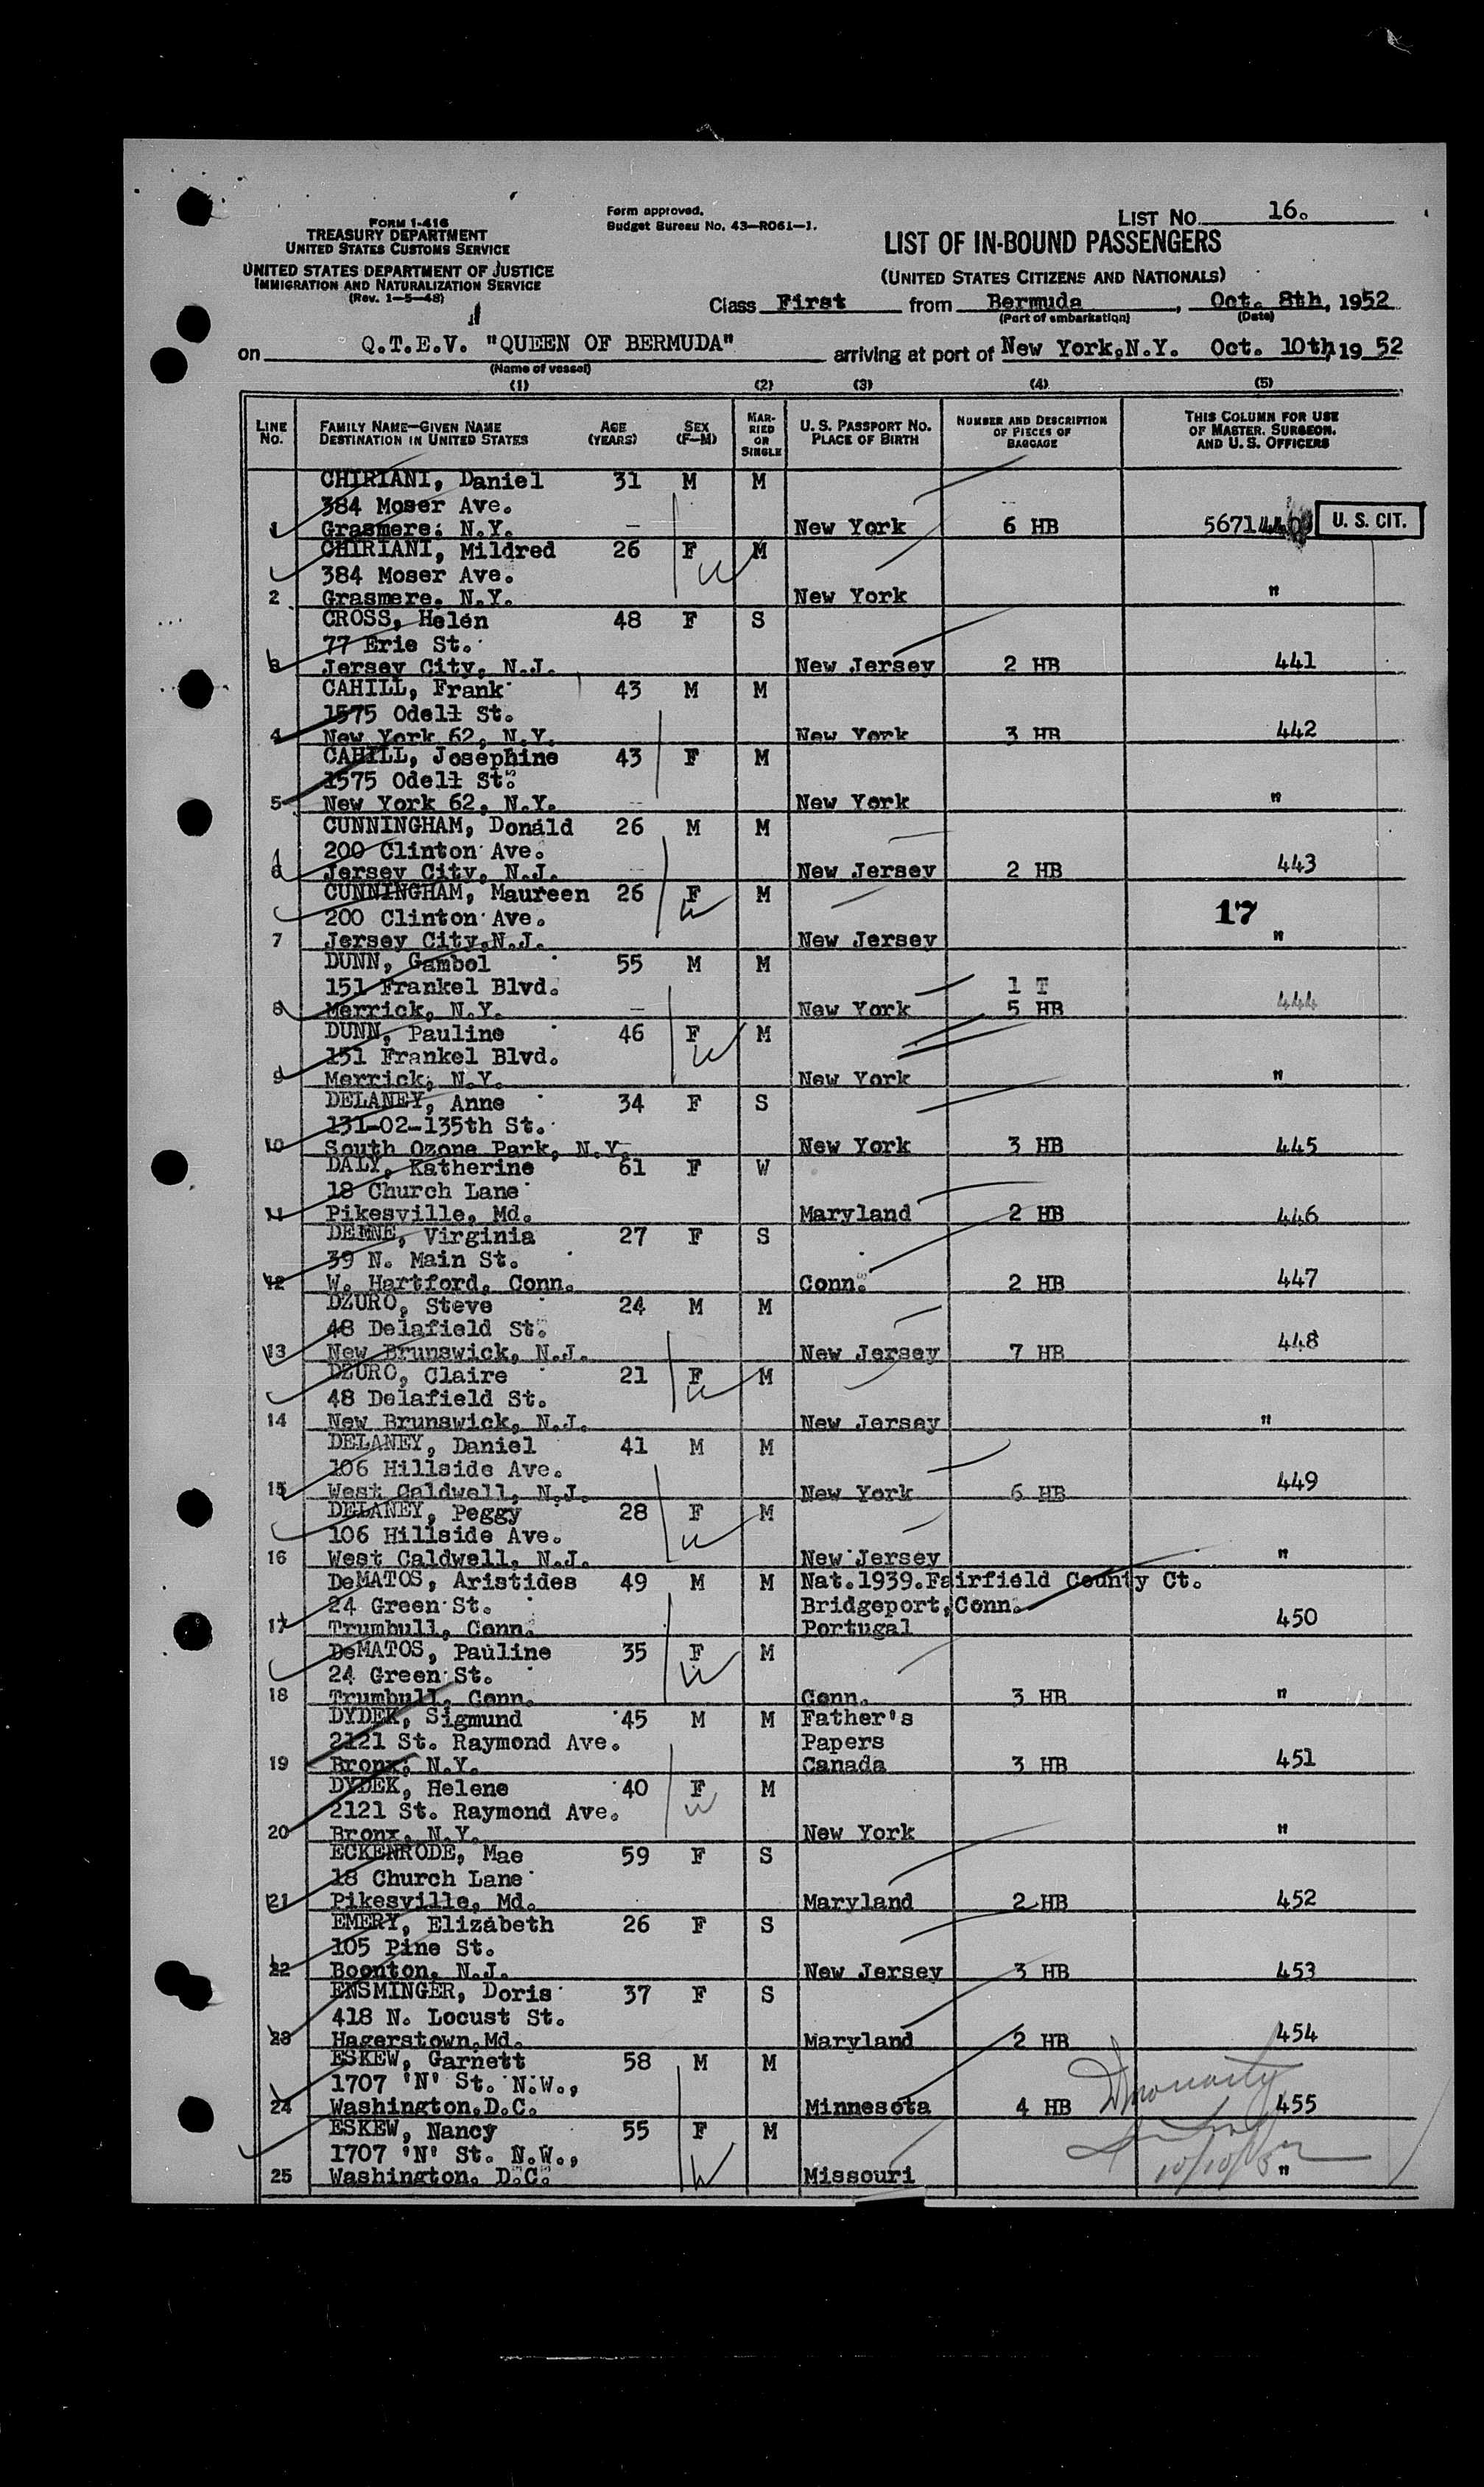 FORM I-416
TREASURY DEPARTMENT
UNITED STATES CUSTOMS SERVICE
UNITED STATES DEPARTMENT OF JUSTICE
IMMIGRATION AND NATURALIZATION SERVICE
(Rev. 1-5-48)
Form approved.
Budget Bureau No. 43-R061-1.
LIST NO. 16.
LIST OF IN-BOUND PASSENGERS
(UNITED STATES CITIZENS AND NATIONALS)
Class First from Bermuda, Oct. 8th, 1952
(Port of embarkation) (Date)
on Q.T.E.V. "QUEEN OF BERMUDA" arriving at port of New York,N.Y. Oct. 10th, 19 52
(Name of vessel)
(1) (2) (3) (4) (5)
LINE NO. FAMILY NAME—GIVEN NAME DESTINATION IN UNITED STATES AGE (YEARS) SEX (F—M) MARRIED OR SINGLE U. S. PASSPORT NO. PLACE OF BIRTH NUMBER AND DESCRIPTION OF PIECES OF BAGGAGE THIS COLUMN FOR USE OF MASTER, SURGEON, AND U. S. OFFICERS
CHIRIANI, Daniel 31 M M
384 Moser Ave.
1 Grasmere, N.Y. New York 6 HB 5671440 U. S. CIT.
CHIRIANI, Mildred 26 F M
384 Moser Ave.
2 Grasmere, N.Y. New York "
CROSS, Helen 48 F S
77 Erie St.
3 Jersey City, N.J. New Jersey 2 HB 441
CAHILL, Frank 43 M M
1575 Odell St.
4 New York 62, N.Y. New York 3 HB 442
CAHILL, Josephine 43 F M
1575 Odell St.
5 New York 62, N.Y. New York "
CUNNINGHAM, Donald 26 M M
200 Clinton Ave.
6 Jersey City, N.J. New Jersey 2 HB 443
CUNNINGHAM, Maureen 26 F M
200 Clinton Ave. 17
7 Jersey City,N.J. New Jersey "
DUNN, Gambol 55 M M
151 Frankel Blvd. 1 T
8 Merrick, N.Y. New York 5 HB 444
DUNN, Pauline 46 F M
151 Frankel Blvd.
9 Merrick, N.Y. New York "
DELANEY, Anne 34 F S
131-02-135th St.
10 South Ozone Park, N.Y. New York 3 HB 445
DALY, Katherine 61 F W
18 Church Lane
11 Pikesville, Md. Maryland 2 HB 446
DEENE, Virginia 27 F S
39 N. Main St.
12 W. Hartford, Conn. Conn. 2 HB 447
DZURO, Steve 24 M M
48 Delafield St.
13 New Brunswick, N.J. New Jersey 7 HB 448
DZURO, Claire 21 F M
48 Delafield St.
14 New Brunswick, N.J. New Jersey "
DELANEY, Daniel 41 M M
106 Hillside Ave.
15 West Caldwell, N.J. New York 6 HB 449
DELANEY, Peggy 28 F M
106 Hillside Ave.
16 West Caldwell, N.J. New Jersey "
DeMATOS, Aristides 49 M M Nat.1939.Fairfield County Ct.
24 Green St. Bridgeport,Conn.
17 Trumbull, Conn. Portugal 450
DeMATOS, Pauline 35 F M
24 Green St.
18 Trumbull, Conn. Conn. 3 HB "
DYDEK, Sigmund 45 M M Father's
2121 St. Raymond Ave. Papers
19 Bronx, N.Y. Canada 3 HB 451
DYDEK, Helene 40 F M
2121 St. Raymond Ave.
20 Bronx, N.Y. New York "
ECKENRODE, Mae 59 F S
18 Church Lane
21 Pikesville, Md. Maryland 2 HB 452
EMERY, Elizabeth 26 F S
105 Pine St.
22 Boonton, N.J. New Jersey 3 HB 453
ENSMINGER, Doris 37 F S
418 N. Locust St.
23 Hagerstown,Md. Maryland 2 HB 454
ESKEW, Garnett 58 M M
1707 'N' St. N.W.,
24 Washington,D.C. Minnesota 4 HB 455
ESKEW, Nancy 55 F M
1707 'N' St. N.W.,
25 Washington, D.C. Missouri "
10/10/52